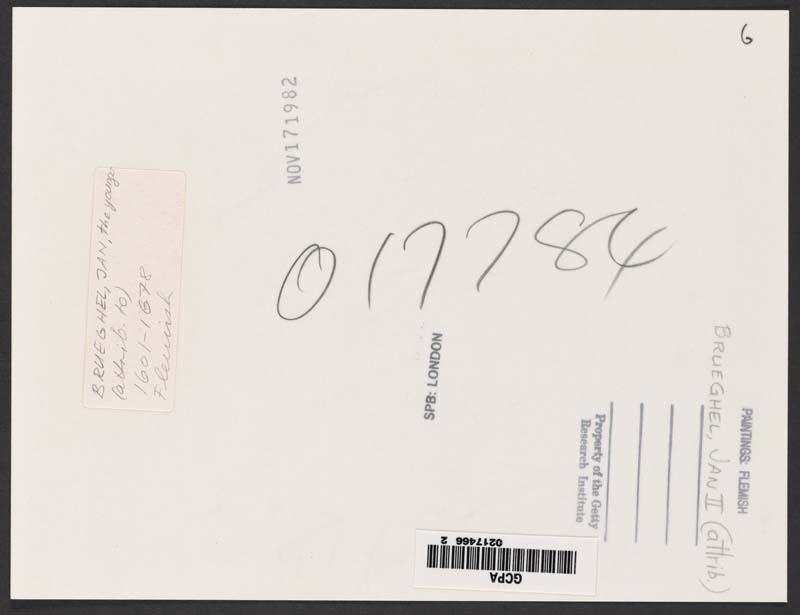 6
NOV 17 1982
BRUEGHEL, JAN, the younger
(attrib. to)
1601-1678
Flemish
017784
SPB: LONDON
PAINTINGS: FLEMISH
BRUEGHEL, JAN II (attrib.)
Property of the Getty
Research Institute
GCPA
0217466 2